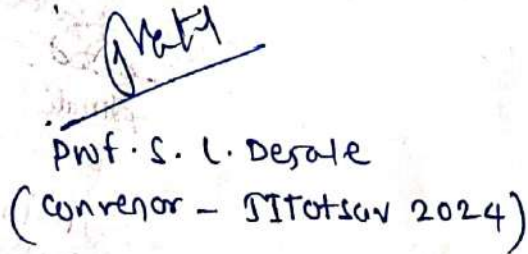 Prof. S. L. Desale
(Convenor - JITotsav 2024)